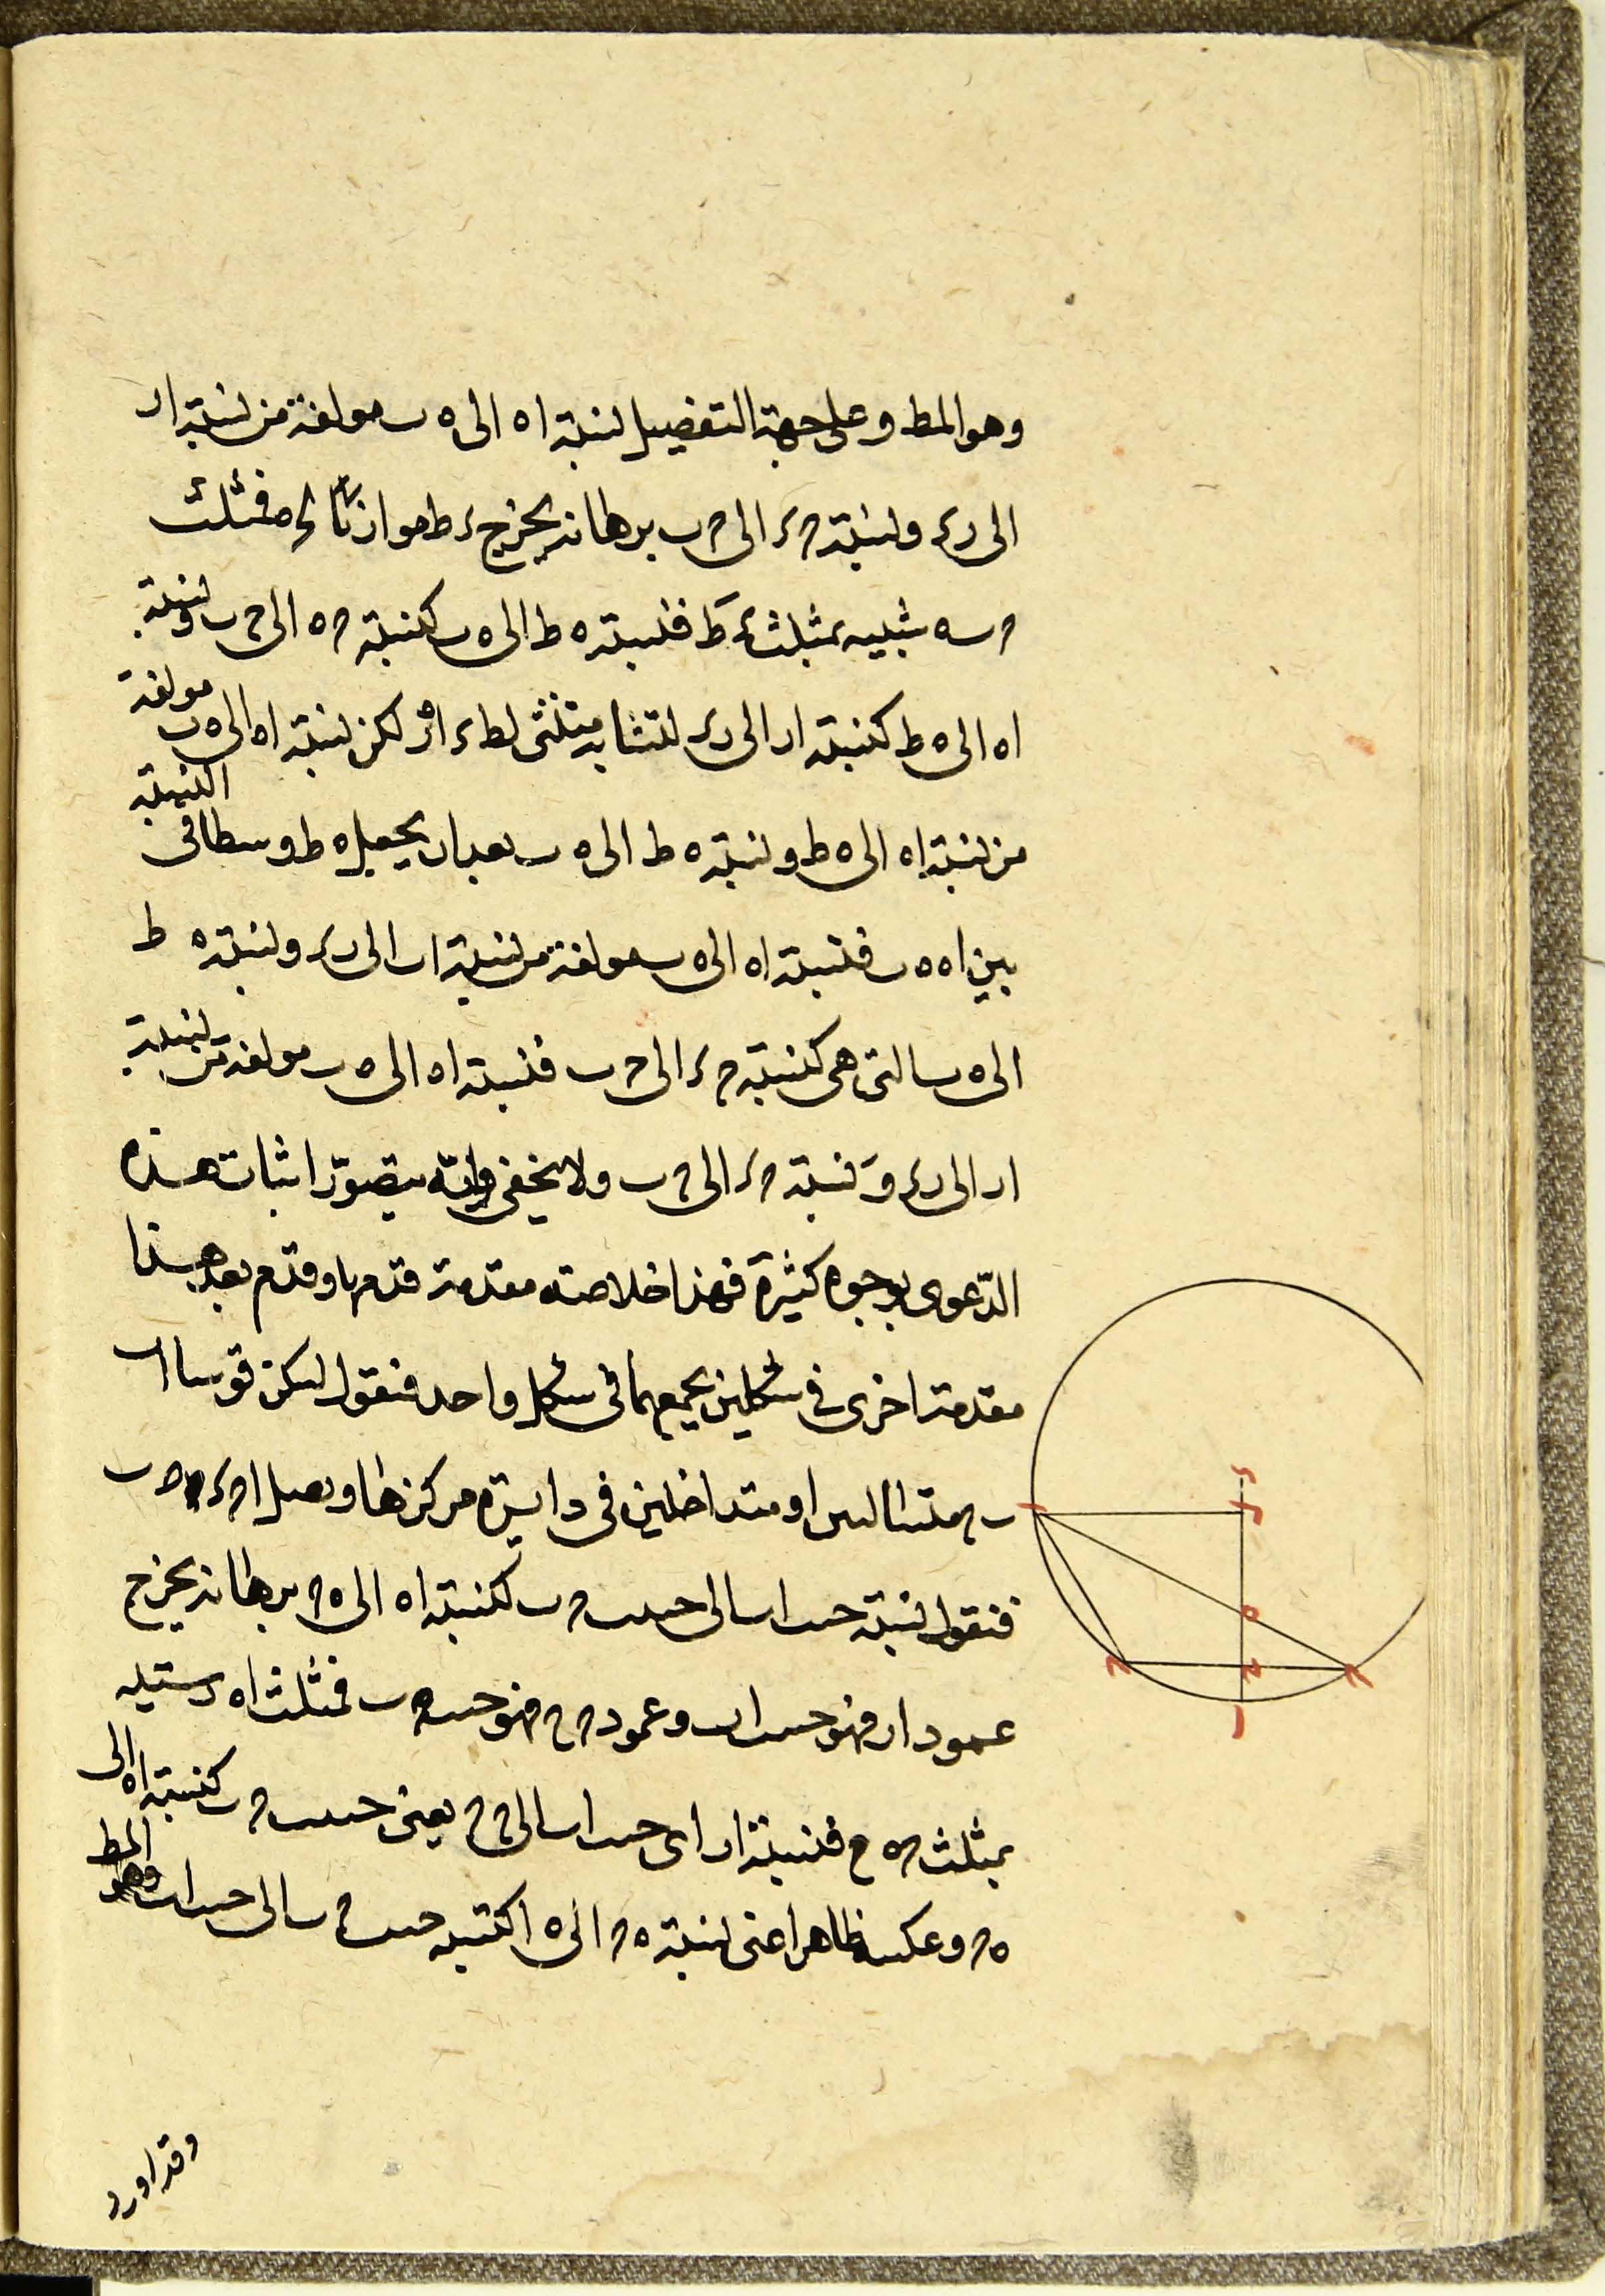 وهو المط وعلى جهة التفصيل لنسبة اه الى ه ب مولفة من نسبة ار
الى رء ونسبة حء الى ح ب برهانه يخرج ء ط موازيا لـ حه فمثلث
ح ب ه شبيه بمثلث ء ب ط فنسبة ه ط الى ه ب كنسبة ح ء الى ح ب ونسبة
اه الى ه ط كنسبة ار الى رء لتشابه مثلثى ا ط ء اه ر لكن نسبة اه الى ه ب مولفة
من نسبة اه الى ه ط ونسبة ه ط الى ه ب بعد ان يجعل ه ط وسطا فى النسبة
بين اه ه ب فنسبة اه الى ه ب مولفة من نسبة ار الى رء ونسبة ه ط
الى ه ب التى هى كنسبة ح ء الى ح ب فنسبة اه الى ه ب مولفة من نسبة
ار الى رء ونسبة ح ء الى ح ب ولا يخفى وانه يتصور اثبات هذه
الدعوى بوجوه كثيرة فهذا خلاصته مقدمة قدمها وقدم بعد هذا
مقدمة اخرى فى شكلين يجمعهما فى شكل واحد فنقول ليكن قوسا اب
ب ح او متداخلين فى دايرة مركزها ونصل اح ء ه ب
فنقول نسبة حب اب الى حب ح ب كنسبة اه الى ه ح برهانه يخرج
عمود ار فهو حب اب وعمود ح ح فهو حب ح ب فمثلث اه ر شبيه
بمثلث ح ه ح فنسبة ار اى حب اب الى ح ح يعنى حب ح ب كنسبة اه الى
ه ح وعكسه ظاهر اعنى نسبة ه ح الى ه ا كنسبة حب ح ب الى حب اب وهو المط
وقد اورد